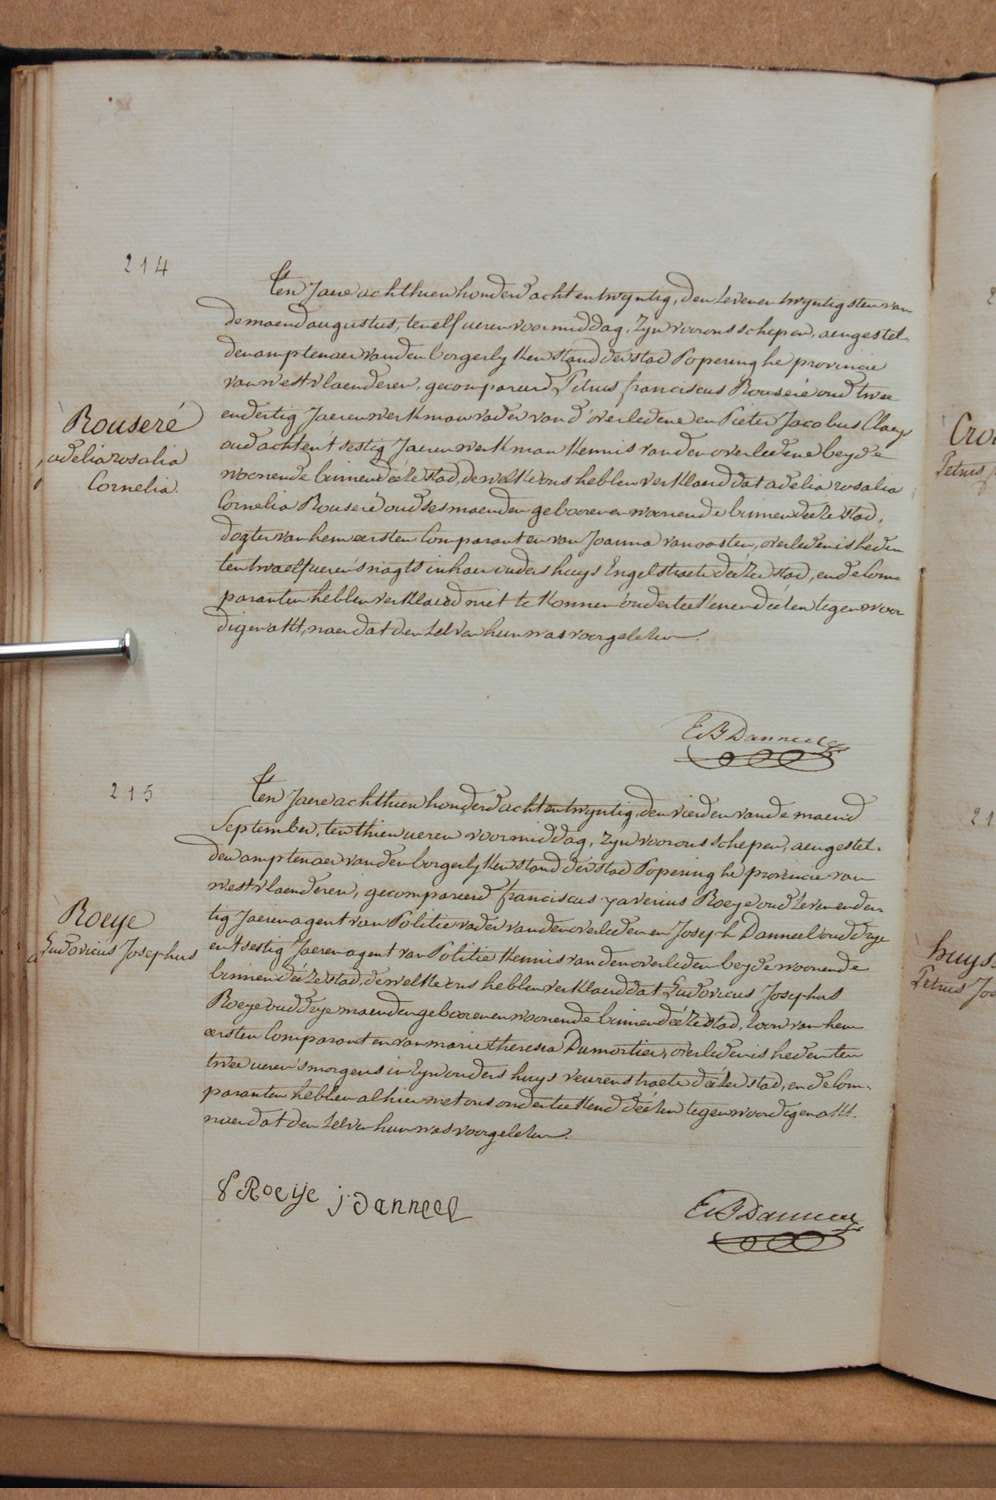 214
Ten Jaere achthien honderd acht en twyntig, den zeven en twyntigsten van
de maend augustus, ten elf ueren voormiddag, Zyn voor ons schepen, aengestel-
den amptenaer van den borgerlyken stand der stad Poperinghe provincie
van westvlaenderen, gecompareerd Petrus franciscus Rouseré oud twee
en dertig Jaeren werkman vader van d'overledene en Pieter Jacobus Claeys
oud acht en t'sestig Jaeren werkman kennis van den overledene beyde
woonende binnen deéze stad, de welke ons hebben verklaerd dat adelia rosalia
Cornelia Rouseré oud ses maenden gebooren en woonende binnen deéze stad,
dogter van hem eersten Comparant en van Joanna vanoosten, overleden is heden
ten twaelf ueren s'nagts in haer ouders huys Engelstraete deéze stad, en de Com-
paranten hebben verklaerd niet te konnen onderteekenen deézen tegenwoor-
digen akt, naer dat den zelven hun was voorgelezen.
Rouseré
adelia rosalia
Cornelia.
E. B. Danneel
215
Ten Jaere achthien honderd acht en twyntig, den vierden van de maend
September, ten thien ueren voormiddag, Zyn voor ons schepen, aengestel-
den amptenaer van den borgerlyken stand der stad Poperinghe provincie van
westvlaenderen, gecompareerd franciscus xaverius Roeye oud zeven en der-
tig Jaeren agent van Politie vader van den overleden en Joseph Danneel oud drye
en t'sestig Jaeren agent van Politie kennis van den overleden beyde woonende
binnen deéze stad, de welke ons hebben verklaerd dat Ludovicus Josephus
Roeye oud drye maenden gebooren en woonende binnen deéze stad, zoon van hem
eersten Comparant en van marie theresia Dumortier, overleden is heden ten
twee ueren s'morgens in zyn ouders huys veurenstraete deéze stad, en de Com-
paranten hebben alhier met ons onderteekend deézen tegenwoordigen akt.
naer dat den zelven hun was voorgelezen.
Roeye
Ludovicus Josephus
f Roeije j. danneel
E. B. Danneel
21
Petrus
huys
Petrus Jos